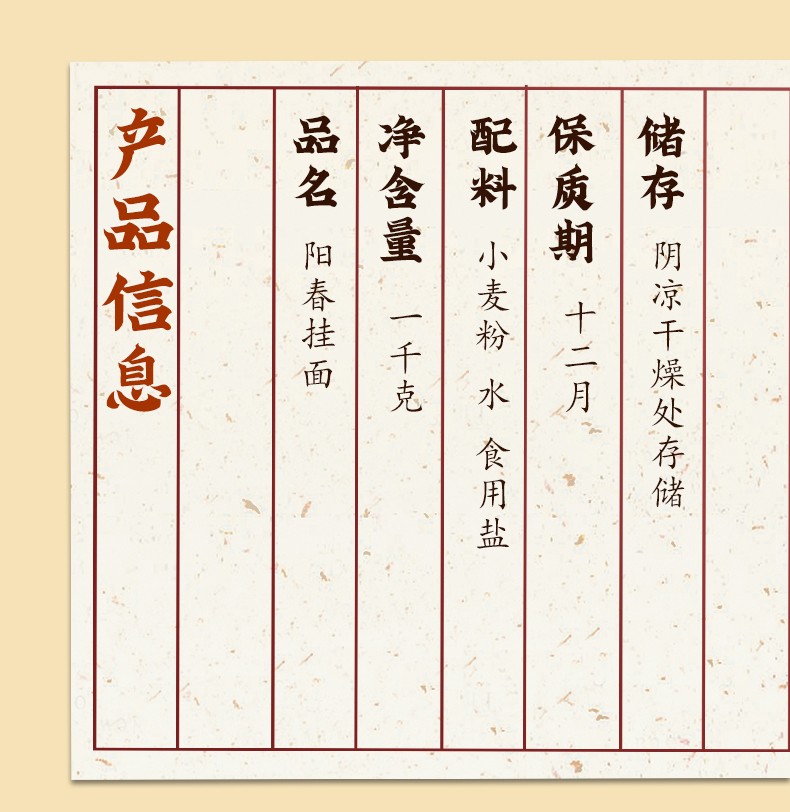 产品信息
品名 阳春挂面
净含量 一千克
配料 小麦粉 水 食用盐
保质期 十二月
储存 阴凉干燥处存储